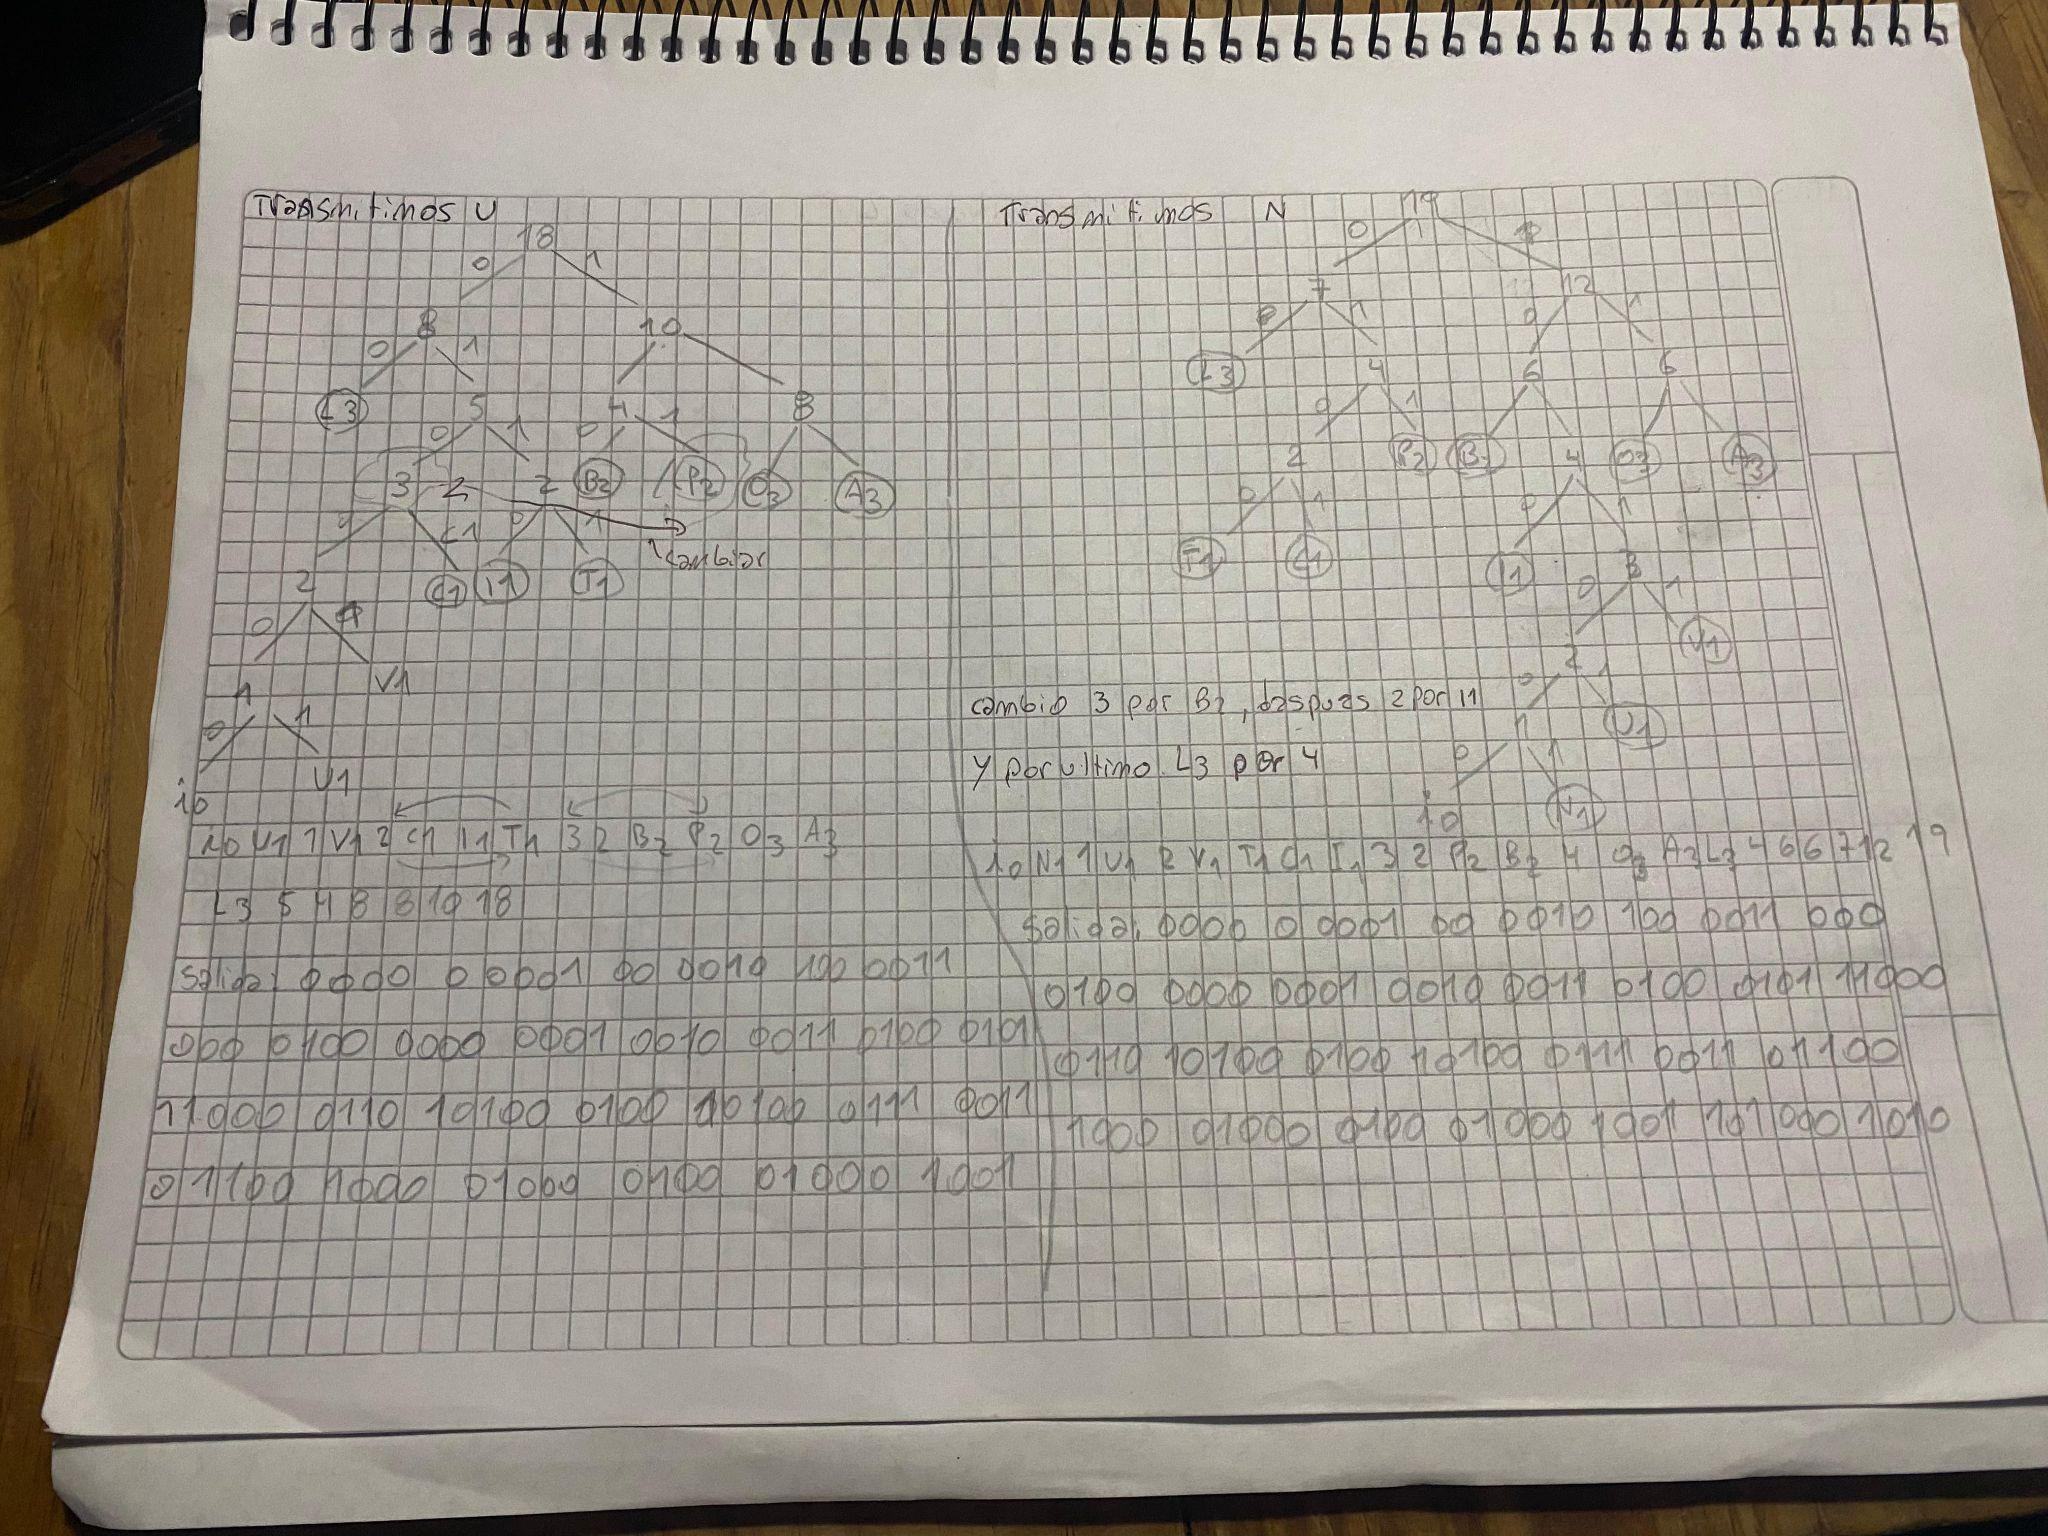 Transmitimos U
18
0 1
8 10
0 1
L3 5 4 8
0 1 0 1
3 2 2 B2 P2 O3 A3
0 1 0 1
cambiar
2 C1 I1 T1
0
1 V1
0 1
i0 U1
i0 U1 1 V1 2 C1 I1 T1 3 2 B2 P2 O3 A3
L3 5 4 8 8 10 18
Salida: 0000 0 0001 00 0010 100 0011
000 0100 0000 0001 0010 0011 0100 0101
11000 0110 10100 0100 10100 0111 0011
01100 1000 01000 0100 01000 1001
Transmitimos N
19
0
7 12
1 0 1
L3 4 6 6
0 1
2 P2 B2 4 O3 A3
0 1 0 1
T1 C1 I1 3
0 1
2 V1
0 1
1 U1
0 1
i0 N1
cambio 3 por B2, despues 2 por I1
y por ultimo L3 por 4
i0 N1 1 U1 2 V1 T1 C1 I1 3 2 P2 B2 4 O3 A3 L3 4 6 6 7 12 19
Salida: 0000 0 0001 00 0010 100 0011 000
0100 0000 0001 0010 0011 0100 0101 11000
0110 10100 0100 10100 0111 0011 01100
1000 01000 0100 01000 1001 101000 1010